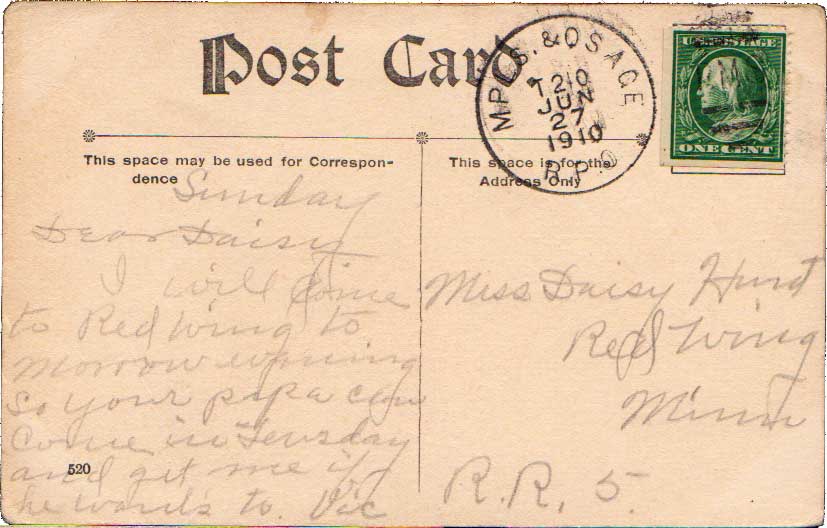 Post Card
MPLS. & OSAGE
T210
JUN
27
1910
R.P.O
U.S. POSTAGE
ONE CENT
This space may be used for Correspon-
dence
This space is for the
Address Only
Sunday
Dear Daisy
I will come
to Red Wing to
morrow evening
so your papa can
come in Teusday
and get me if
he wants to. Vic
520
Miss Daisy Hurd
Red Wing
Minn
R.R. 5.